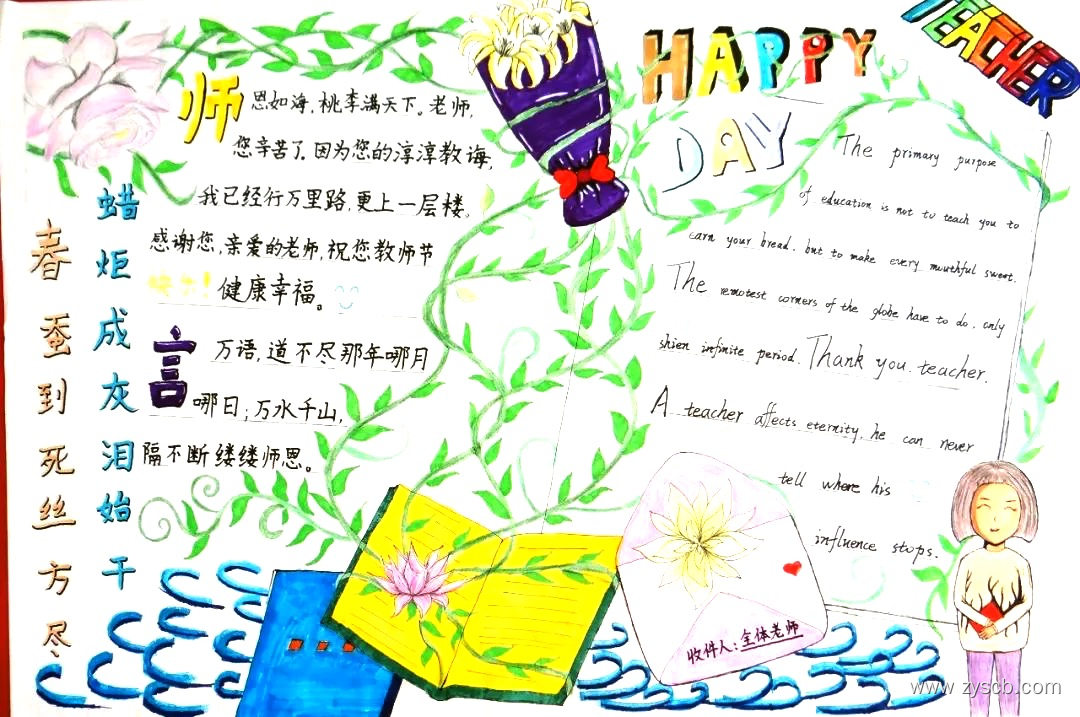 春蚕到死丝方尽
蜡炬成灰泪始干
师恩如海,桃李满天下。老师,
您辛苦了,因为您的淳淳教诲,
我已经行万里路,更上一层楼。
感谢您,亲爱的老师,祝您教师节
快乐!健康幸福。
言万语,道不尽那年哪月
哪日;万水千山,
隔不断缕缕师恩。
HAPPY
TEACHER
DAY
The primary purpose
of education is not to teach you to
earn your bread. but to make every mouthful sweet.
The remotest corners of the globe have to do. only
shien infinite period. Thank you teacher.
A teacher affects eternity. he can never
tell where his
influence stops.
收件人:全体老师
www.zyscb.com